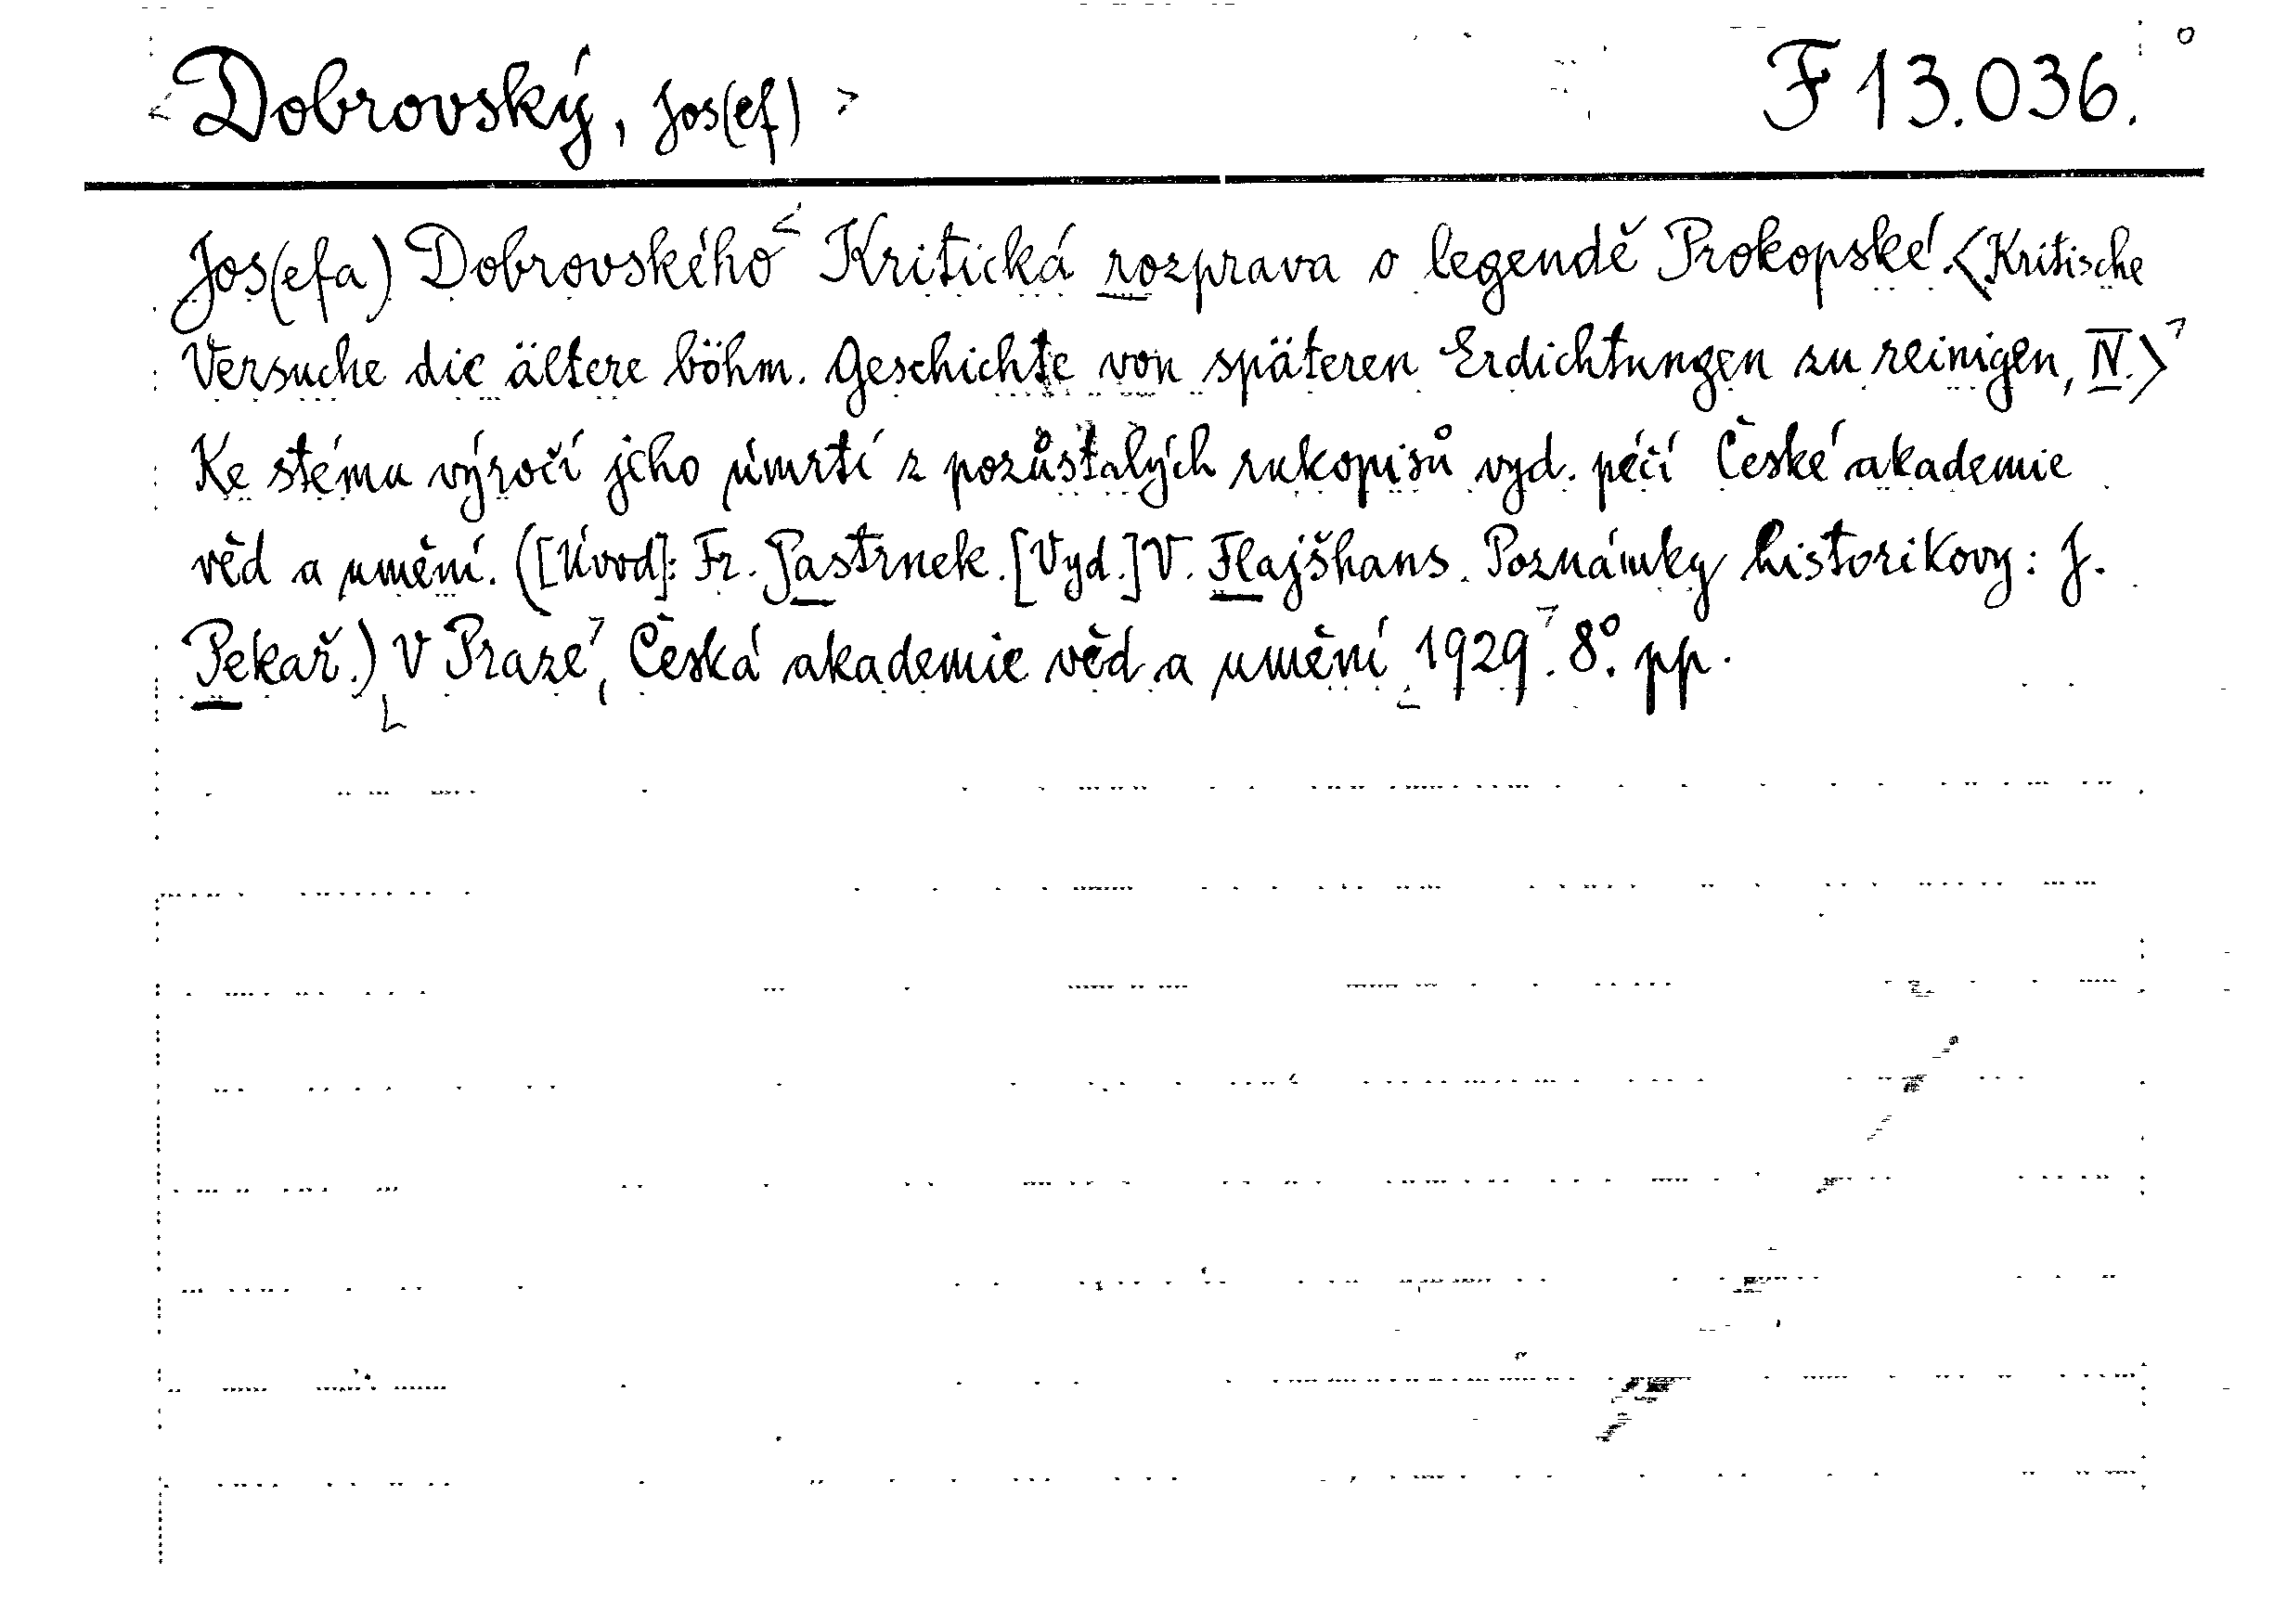 Dobrovský, Jos(ef) F 13.036.
Jos(efa) Dobrovského Kritická rozprava o legendě Prokopské. <Kritische
Versuche die ältere böhm. Geschichte von späteren Erdichtungen zu reinigen, IV.>
Ke stému výročí jeho úmrtí z pozůstalých rukopisů vyd. péčí České akademie
věd a umění. ([Úvod]: Fr. Pastrnek. [Vyd.] V. Flajšhans. Poznámky historikovy: J.
Pekař.) V Praze, Česká akademie věd a umění 1929. 8°. pp.